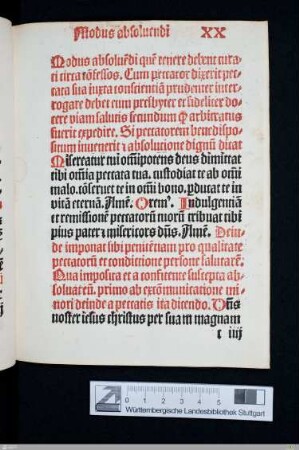 Modus absoluendi XX
Modus absoluẽdi quẽ tenere debent cura
ti circa cõfessos. Cum peccator dixerit pec
cata sua iuxta conscientiã prudenter inter
rogare debet eum presbyter et fideliter do
cere viam salutis secundum ꝙ arbitratus
fuerit expedire. Si peccatorem bene dispo
situm inuenerit ⁊ absolutione dignũ dicat
Misereatur tui oĩnipotens deus dimittat
tibi oĩnia peccata tua. custodiat te ab oĩni
malo. cõseruet te in oĩni bono. ꝑducat te in
vitã eternã. Amẽ. Oremꝰ. Indulgentiã
et remissionẽ peccatorũ tuorũ tribuat tibi
pius pater ⁊ misericors dñs. Amẽ. Dein
de imponat sibi penitẽtiam pro qualitate
peccatorũ et conditione persone salutarẽ.
Qua imposita et a confitente suscepta ab
soluat eũ. primo ab excõmunicatione mi
nori deinde a peccatis ita dicendo. Dñs
noster iesus christus per suam magnam
c iiij
0 1 2 3 4 5
Württembergische Landesbibliothek Stuttgart